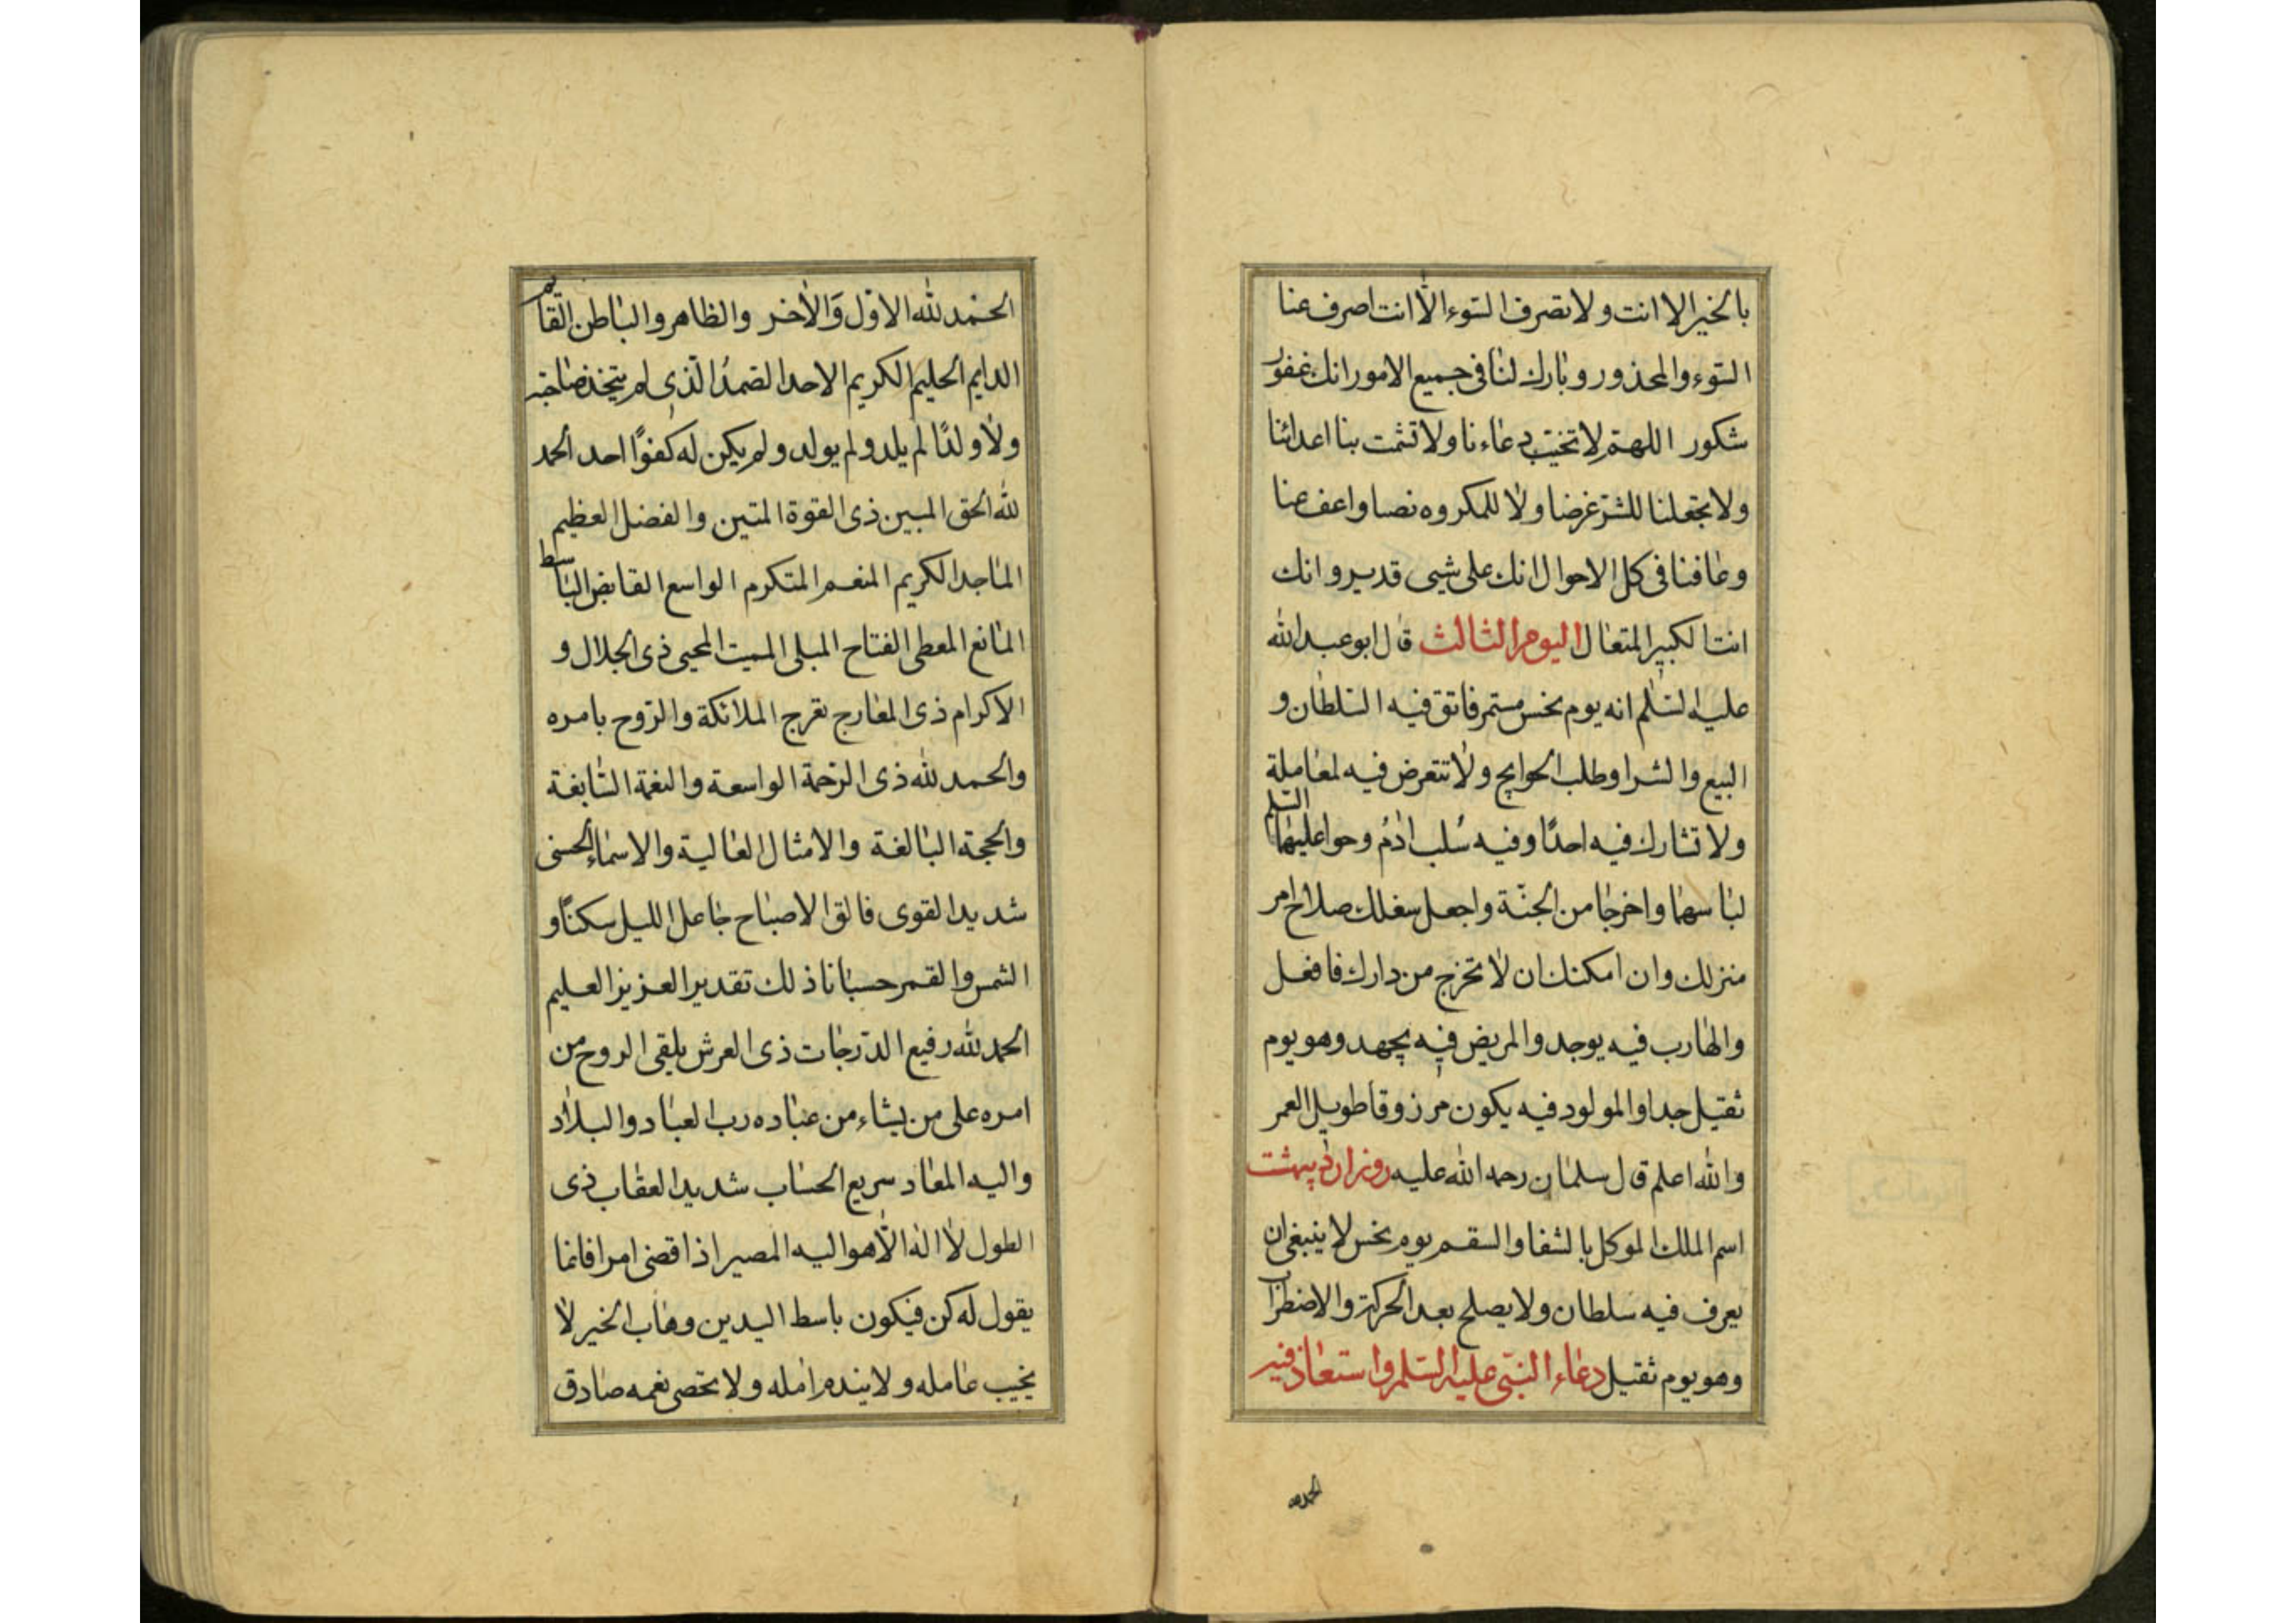 بالخير الا انت ولا تصرف السوء الا انت اصرف عنا
السوء والمحذور وبارك لنا فى جميع الامور انك غفور
شكور اللهم لا تخيب دعاءنا ولا تشمت بنا اعدائنا
ولا تجعلنا للشر غرضا ولا للمكروه نصبا واعف عنا
وعافنا فى كل الاحوال انك على شيى قدير وانك
انت الكبير المتعال اليوم الثالث قال ابو عبد الله
عليه السلم انه يوم نحس مستمر فاتق فيه السلطان و
البيع والشرا وطلب الحوايج ولا تتعرض فيه لمعاملة
ولا تشارك فيه احدًا وفيه سُلب ادمُ وحوا عليهما السلم
لباسهما واخرجا من الجنّة واجعل سغلك صلاح امر
منزلك وان امكنك ان لا تخرج من دارك فافعل
والهارب فيه يوجد والمريض فيه يجهد وهو يوم
ثقيل جدا والمولود فيه يكون مرزوقا طويل العمر
والله اعلم قال سلمان رحمه الله عليه روز ارديبهشت
اسم الملك الموكل بالشفا والسقم يوم نحس لا ينبغى ان
يعرف فيه سلطان ولا يصلح بعد الحركة والاضطراب
وهو يوم ثقيل دعاء النبى عليه السلم واستعاذ فيه
الحمد لله
الحمد لله الاول وَالاخر والظاهر والباطن القائم
الدايم الحليم الكريم الاحد الصمدُ الّذى لم يتخذ صاحبه
ولا ولدًا لم يلد ولم يولد ولم يكن له كفوًا احد الحمد
لله الحق المبين ذى القوة المتين والفضل العظيم
الماجد الكريم المنعم المتكرم الواسع القابض الباسط
المانع المعطى الفتاح المبلى المميت المحيى ذى الجلال و
الاكرام ذى المعارج تعرج الملائكة والروح بامره
والحمد لله ذى الرحمة الواسعة والنعمة السابغة
والحجة البالغة والامثال العالية والاسماء الحسنى
شديد القوى فالق الاصباح جاعل الليل سكنًا و
الشمس والقمر حسبانا ذلك تقدير العزيز العليم
الحمد لله رفيع الدرجات ذى العرش يلقى الروح من
امره على من يشاء من عباده رب العباد والبلاد
واليه المعاد سريع الحساب شديد العقاب ذى
الطول لا اله الّا هو اليه المصير اذا قضى امرا فانما
يقول له كن فيكون باسط اليدين وهاب الخير لا
يخيب عامله ولا يندم امله ولا تحصى نعمه صادق